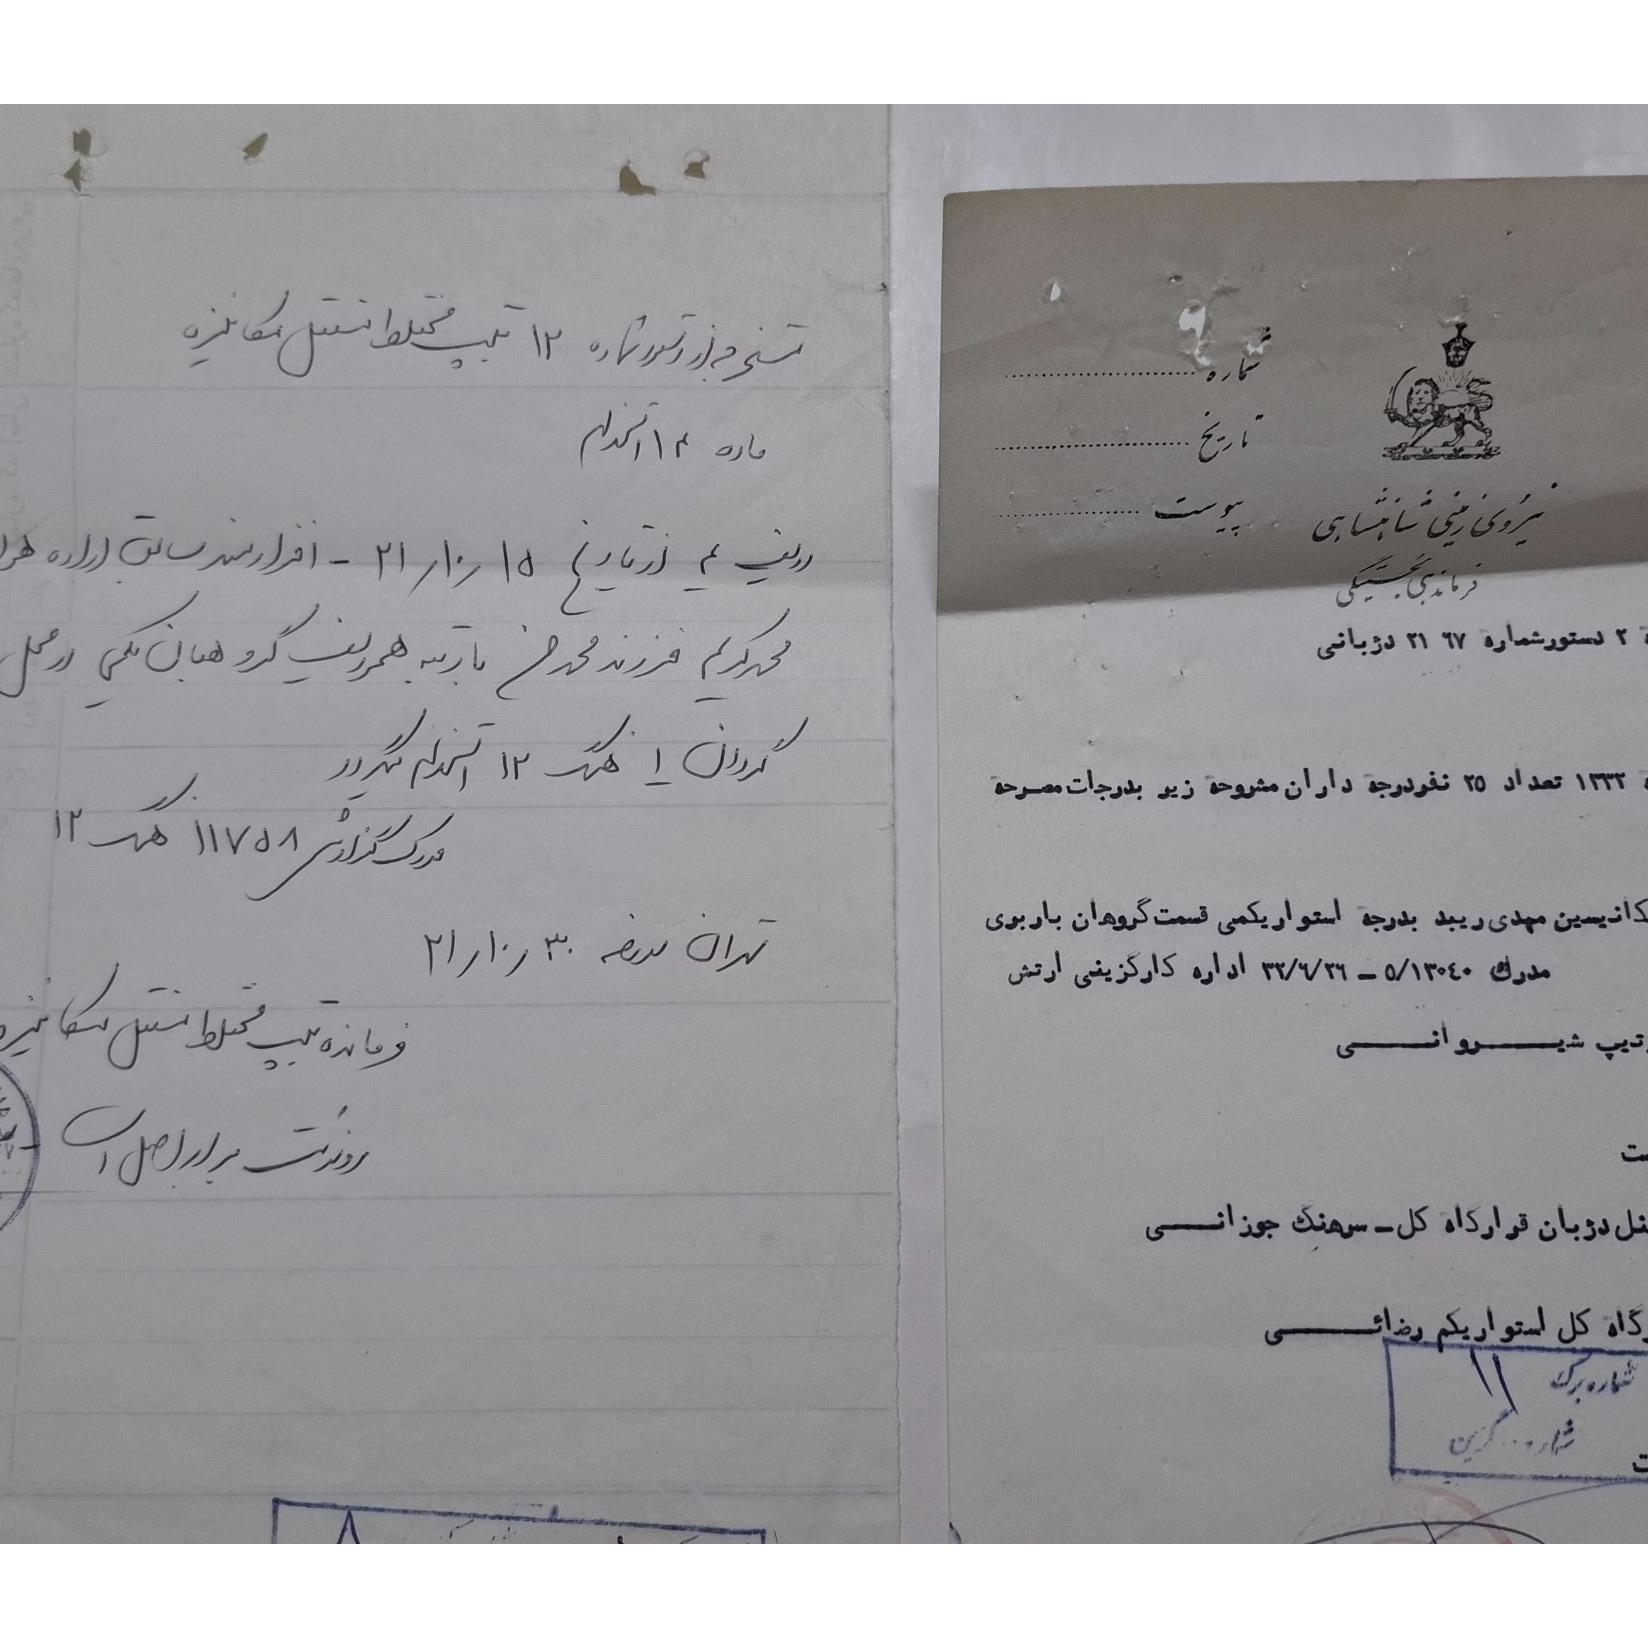 مستخرجه از دستور شماره ۱۲ تیپ مختلط مستقل مکانیزه
ماده ۱۲ استخدام
ردیف یکم از تاریخ ۱۵ ر۱۰ر ۲۱ - افزارمند سابق اداره
محمدکریم فرزند محمد با رتبه همردیف گروهبان یکمی در محل
گردان ۱ هنگ ۱۲ استخدام میگردد
مدرک گزارش ۱۱۷۵۸ هنگ ۱۲
تهران مورخه ۳۰ ر۱۰ر ۲۱
فرمانده تیپ مختلط مستقل مکانیزه
رونوشت برابر اصل است
شماره
تاریخ
پیوست
نیروی زمینی شاهنشاهی
۲ دستور شماره ۶۷ ۲۱ دژبانی
۱۳۳۲ تعداد ۲۵ نفر درجه داران مشروحه زیر بدرجات مصرحه
مهدی ربید بدرجه استواریکمی قسمت گروهان باربری
مدرک ۵/۱۳۰۴۰ – ۳۲/۶/۲۶ اداره کارگزینی ارتش
تیپ شیروانی
دژبان قرارگاه کل – سرهنگ جوزانی
گاه کل استواریکم رضائی
شماره برگ ۱۱
شماره گزین
۸